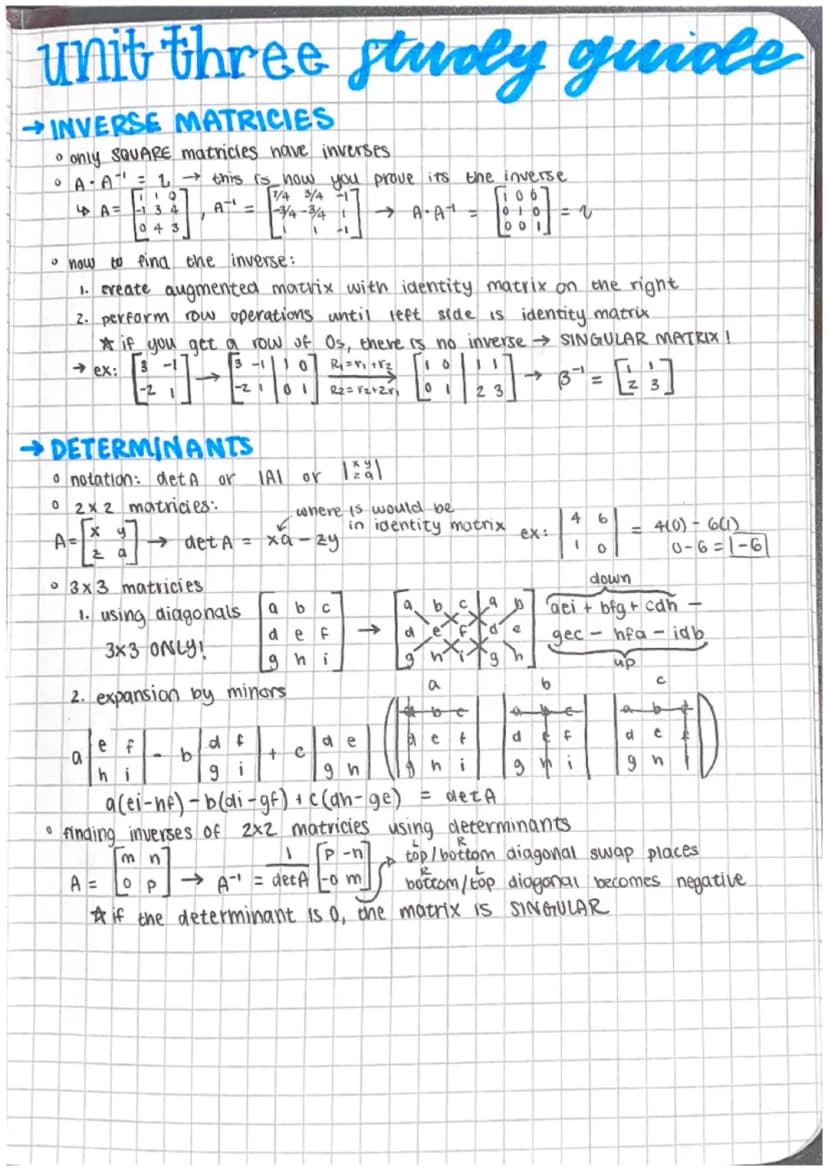 unit three study guide
→ INVERSE MATRICIES
∘ only SQUARE matricies have inverses
∘ A · A⁻¹ = I → this is how you prove its the inverse
↳ A = [1 1 0; -1 3 4; 0 4 3], A⁻¹ = [7/4 3/4 -1; -3/4 -3/4 1; 1 1 -1] → A · A⁻¹ = [1 0 0; 0 1 0; 0 0 1] = I
∘ how to find the inverse:
1. create augmented matrix with identity matrix on the right
2. perform row operations until left side is identity matrix
☆ if you get a row of 0s, there is no inverse → SINGULAR MATRIX!
→ ex: [3 -1; -2 1] → [3 -1 | 1 0; -2 1 | 0 1] R₁=r₁+r₂ R₂=r₂+2r₁ → [1 0 | 1 1; 0 1 | 2 3] → B⁻¹ = [1 1; 2 3]
→ DETERMINANTS
∘ notation: det A or |A| or |x y; z a|
∘ 2x2 matricies:
where 1s would be in identity matrix
A = [x y; z a] → det A = xa - zy
ex: |4 6; 1 0| = 4(0) - 6(1)
0-6 = -6
∘ 3x3 matricies
1. using diagonals [a b c; d e f; g h i] → [a b c | a b; d e f | d e; g h i | g h]
3x3 ONLY!
down
aei + bfg + cdh -
gec - hfa - idb
up
2. expansion by minors
a b c
a |e f; h i| - b |d f; g i| + c |d e; g h| (|a b c; d e f; g h i| |a b c; d e f; g h i| |a b c; d e f; g h i|)
a(ei-hf) - b(di-gf) + c(dh-ge) = det A
∘ finding inverses of 2x2 matricies using determinants
A = [m n; o p] → A⁻¹ = 1/det A [p -n; -o m]
L R
top/bottom diagonal swap places
R L
bottom/top diagonal becomes negative
☆ if the determinant is 0, the matrix is SINGULAR